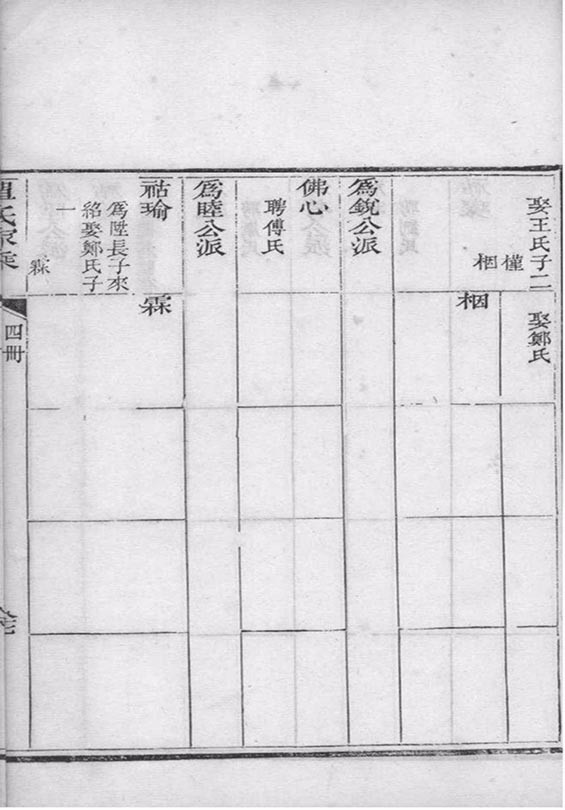 娶王氏子二
槿
栶
娶鄭氏
栶
爲銳公派
佛心
聘傅氏
爲睦公派
祜瑜
霖
爲陞長子來
紹娶鄭氏子
一
霖
氏家乘
四冊